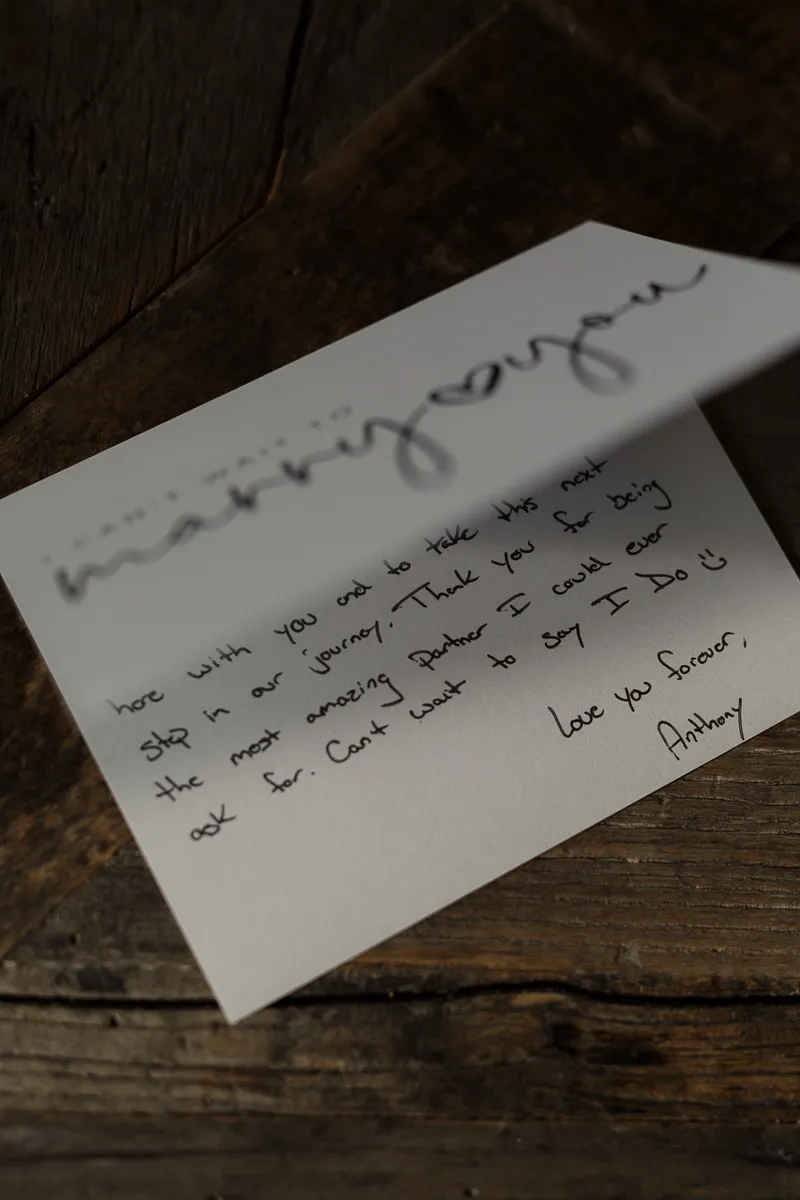 I CAN'T WAIT TO
marry you
here with you and to take this next
step in our journey. Thank you for being
the most amazing partner I could ever
ask for. Cant wait to say I Do :)
Love you forever,
Anthony